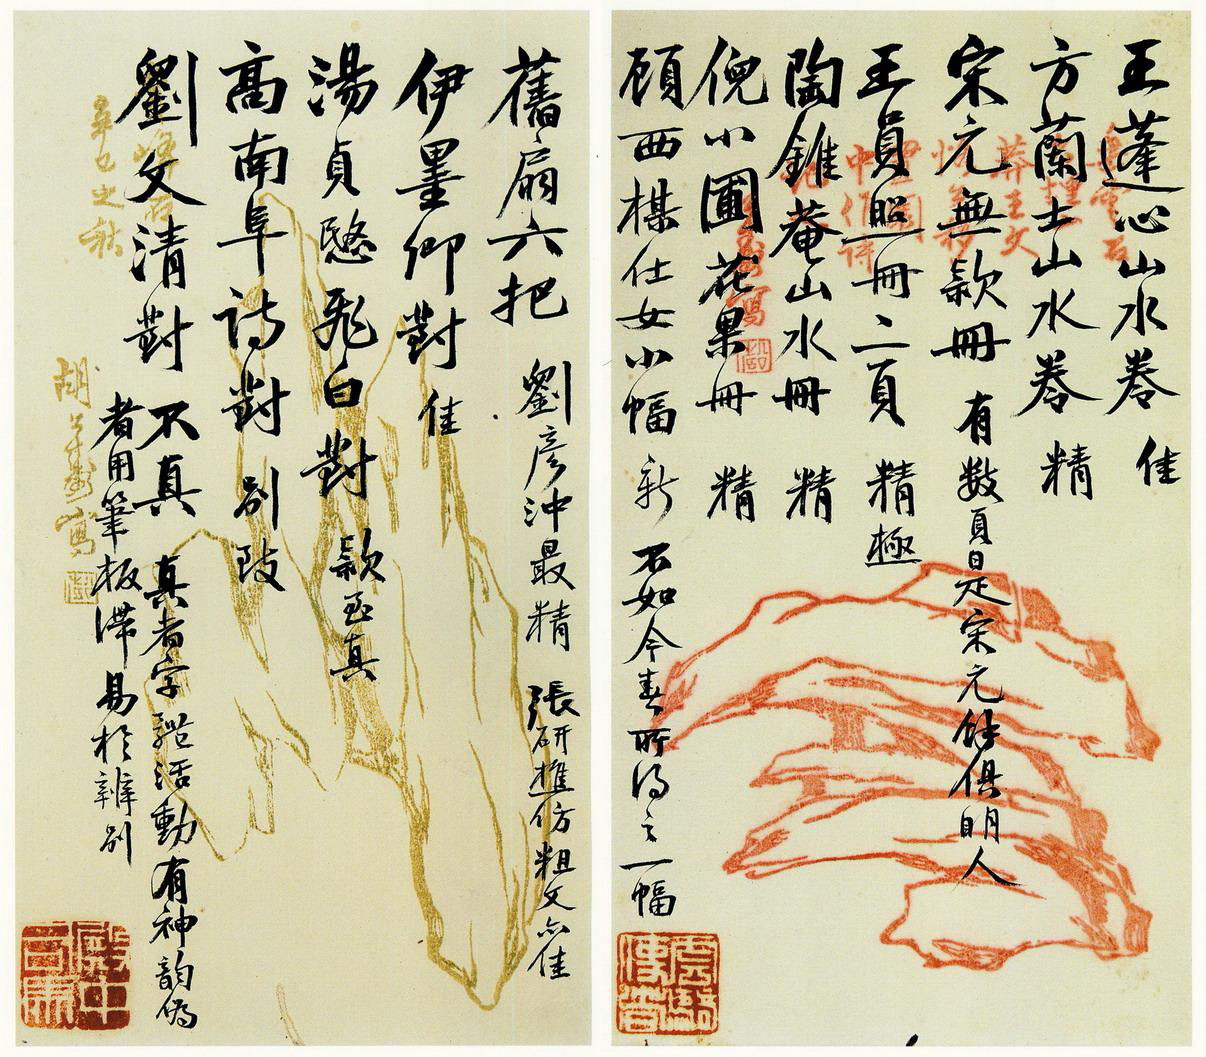 王蓬心山水卷 佳
方蘭士山水卷 精
宋元無款冊 有數頁是宋元餘俱明人
王員照冊二頁 精極
陶錐菴山水冊 精
倪小圃花果冊 精
顧西楳仕女小幅 新 不如今春所得之一幅
舊扇六把 劉彥沖最精 張研樵仿粗文亦佳
伊墨卿對 佳
湯貞愍飛白對 款至真
高南阜詩對 別致
劉文清對 不真 真者字蹤活動有神韵偽
者用筆板滯易於辨別
辛巳之秋
胡公壽寫